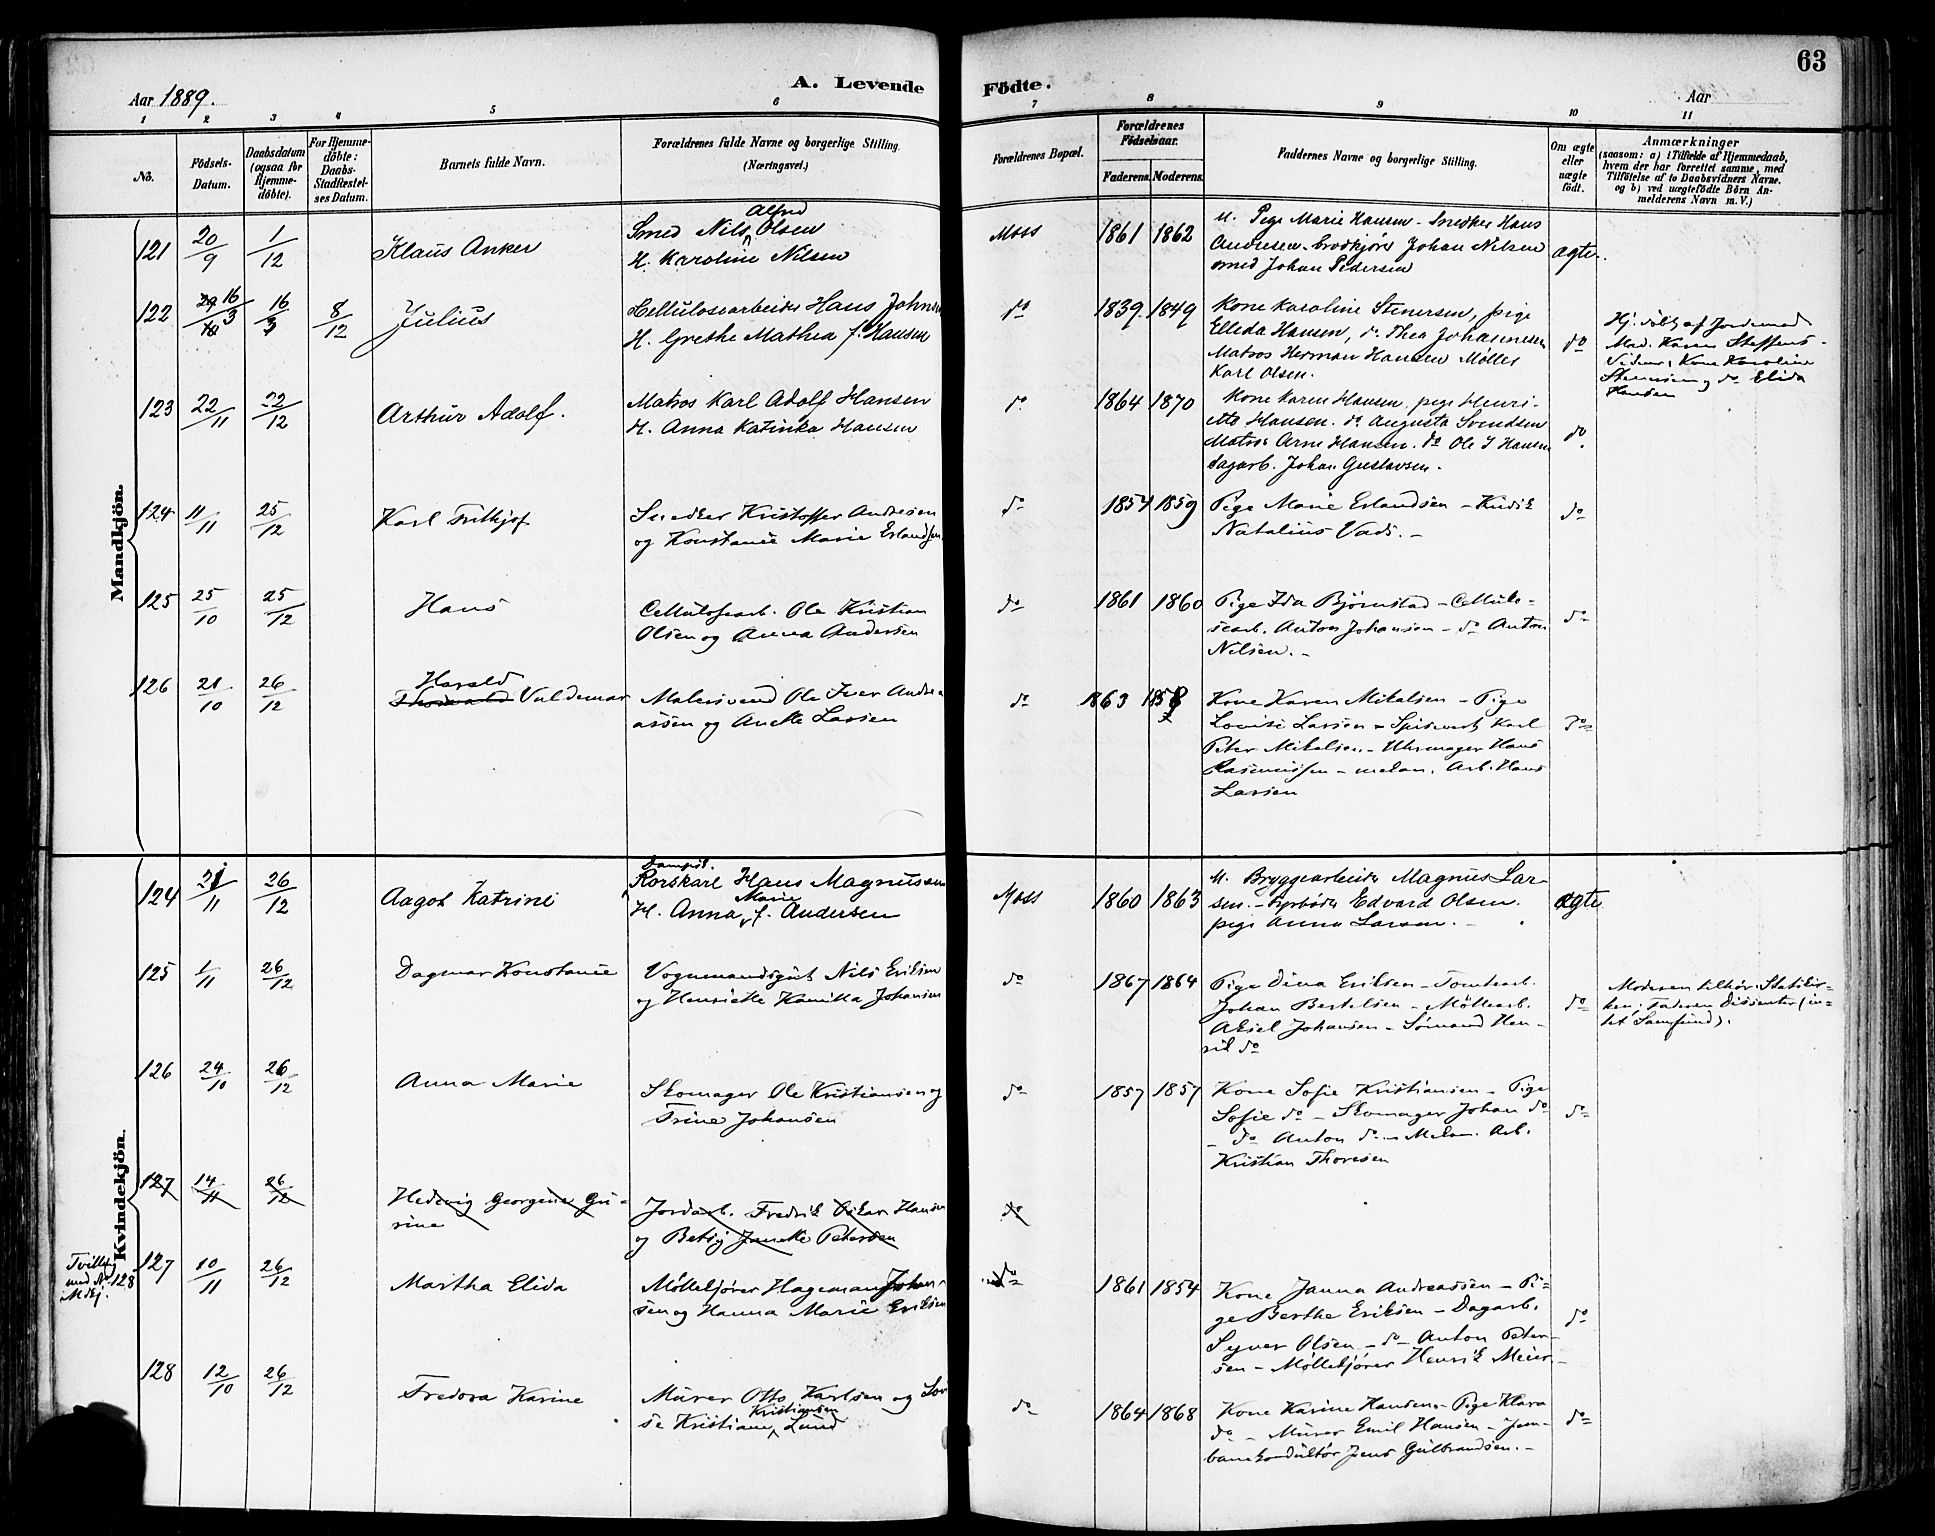 63
A. Levende Födte.
Aar 1889.
Aar
1 2 3 4 5 6 7 8 9 10 11
No.
Födsels-
Datum.
Daabsdatum
(ogsaa for
Hjemme-
döbte).
For Hjemme-
döbte:
Daabs-
Stadfæstel-
ses Datum.
Barnets fulde Navn.
Forældrenes fulde Navne og borgerlige Stilling.
(Næringsvei.)
Forældrenes Bopæl.
Forældrenes
Födselsaar.
Faderens. Moderens.
Faddernes Navne og borgerlige Stilling.
Om ægte
eller
uægte
födt.
Anmærkninger
(saasom: a) i Tilfælde af Hjemmedaab,
hvem der har forrettet samme, med
Tilföielse af to Daabsvidners Navne.
og b) ved uægtefödte Börn An-
melderens Navn m. V.)
Mandkjön.
121 20/9 1/12 Klaus Anker
Smed Nils Alfred Olsen
H. Karoline Nilsen
Moss 1861 1862
M. Pige Marie Hansen - Snedker Hans
Andresen - Johan Nilsen
smed Johan Pedersen
ægte.
122 16/3 16/3 8/12 Julius
Cellulosearbeider Hans Johns
H. Grethe Mathea f. Hansen
do 1839 1849
Kone Karoline Stenersen, pige
Elleda Hansen, do Thea Johannesen
Matros Herman Hansen Møller
Karl Olsen.
do
Hj. døbt af Jordemod
Mad. Karen Steffens-
Vidner, Kone Karoline
Stenersen og do Elida
Hansen
123 22/11 22/12 Arthur Adolf.
Matros Karl Adolf Hansen
H. Anna Katinka Hansen
do 1864 1870
Kone Karen Hansen, pige Henri-
ette Hansen. do Augusta Svendsen
Matros Arne Hansen. do Ole J Hansen
dagarb. Johan Gustavsen.
do
124 11/11 25/12 Karl Frithjof
Snedker Kristoffer Andresen
og Konstance Marie Erlandsen
do 1854 1859
Pige Marie Erlandsen - Kudsk
Natalius Vads. -
do
125 25/10 25/12 Hans
Cellulosearb. Ole Kristian
Olsen og Anna Andersen
do 1861 1860
Pige Ida Bjørnstad - Cellulo-
searb. Anton Johansen - do Anton
Nilsen. -
do
126 21/10 26/12 Harald
Thorvald Valdemar
Malersvend Ole Iver Andre
assen og Anette Larsen
do 1863 1858
Kone Karen Mikalsen - Pige
Lovise Larsen - Karl
Peter Mikalsen - Uhrmager Hans
Rasmussen - mekan. Arb. Hans
Larsen
do
Kvindekjön.
124 21/11 26/12 Aagot Katrine
Dampsk.
Rorskarl Hans Magnussen
H. Anna Marie f. Andersen
Moss 1860 1863
M. Bryggearbeider Magnus Lar-
sen. - Fyrbøder Edvard Olsen.
pige Anna Larsen. -
ægte
125 1/11 26/12 Dagmar Konstance
Vognmandsgut Nils Eriksen
og Henriette Kamilla Johansen
do 1867 1864
Pige Dina Eriksen - Tomtearb.
Johan Bertelsen - Møllearb.
Aksel Johansen - Sømand Hen-
rik do
do
Moderen tilhør. Statskir-
ken, Faderen Dissenter (in-
tet Samfund).
126 24/10 26/12 Anna Marie
Skomager Ole Kristiansen og
Trine Johansen
do 1857 1857
Kone Sofie Kristiansen - Pige
Sofie do - Skomager Johan do
- do Anton do - Mekan. Arb.
Kristian Thoresen
do
127 14/11 26/12 Hedevig Georgine Gu-
rine
Jordarb. Fredrik Oskar Hansen
og Betsy Janette Petersen
do
Tvilling
med No 128
i Mdkj.
127 10/11 26/12 Martha Elida
Møllekjører Hageman Johan-
sen og Hanna Marie Eriksen
do 1861 1854
Kone Janna Andreassen - Pi-
ge Berthe Eriksen - Dagarb.
Syver Olsen - do - Anton Peter-
sen - Møllekjører Henrik Meier -
do
128 12/10 26/12 Fredora Karine
Murer Otto Karlsen og Lov
se Kristiane Kristiansen Lund
do 1864 1868
Kone Karine Hansen - Pige Klara
do - Murer Emil Hansen - Jern-
banekonduktør Jens Gulbrandsen. -
do